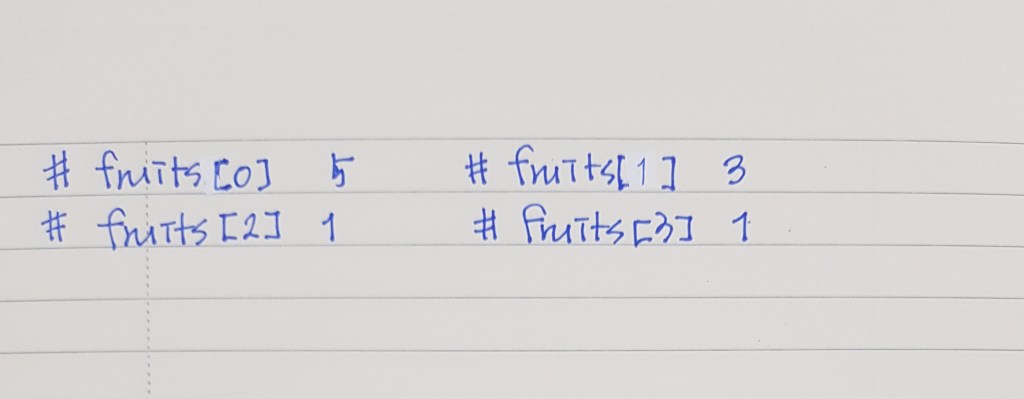 # fruits[0] 5 # fruits[1] 3
# fruits[2] 1 # fruits[3] 1